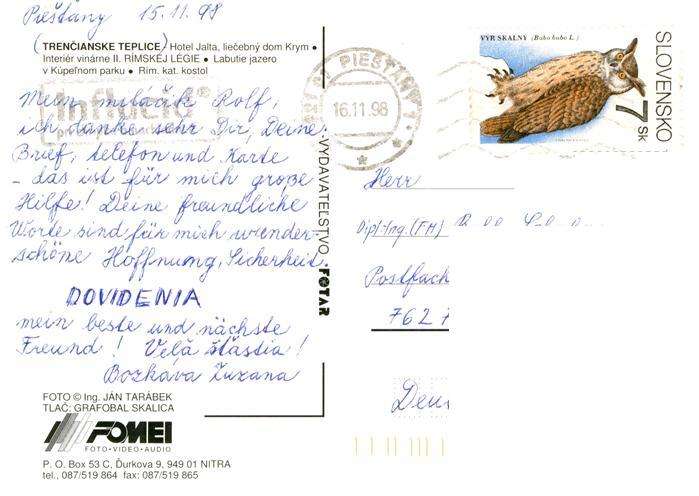 Piešťany 15.11.98
(TRENČIANSKE TEPLICE) Hotel Jalta, liečebný dom Krym •
Interiér vinárne II. RÍMSKEJ LÉGIE • Labutie jazero
v Kúpeľnom parku • Rím. kat. kostol
Mein miláčik Rolf,
ich danke sehr Dir, Deine
Brief, telefon und Karte
- das ist für mich große
Hilfe! Deine freundliche
Worte sind für mich wunder-
schöne Hoffnung, Sicherheit.
DOVIDENIA
mein beste und nächste
Freund! Veľa šťastia!
Bozkáva Zuzana
FOTO © Ing. JÁN TARÁBEK
TLAČ: GRAFOBAL SKALICA
FOMEI
FOTO•VIDEO•AUDIO
P. O. Box 53 C, Ďurkova 9, 949 01 NITRA
tel., 087/519 864 fax: 087/519 865
VYDAVATEĽSTVO FOTAR
PIEŠŤANY 1
16.11.98
VÝR SKALNÝ (Bubo bubo L.)
SLOVENSKO
7 Sk
Herr
Dipl.-Ing. (FH)
Postfach
762